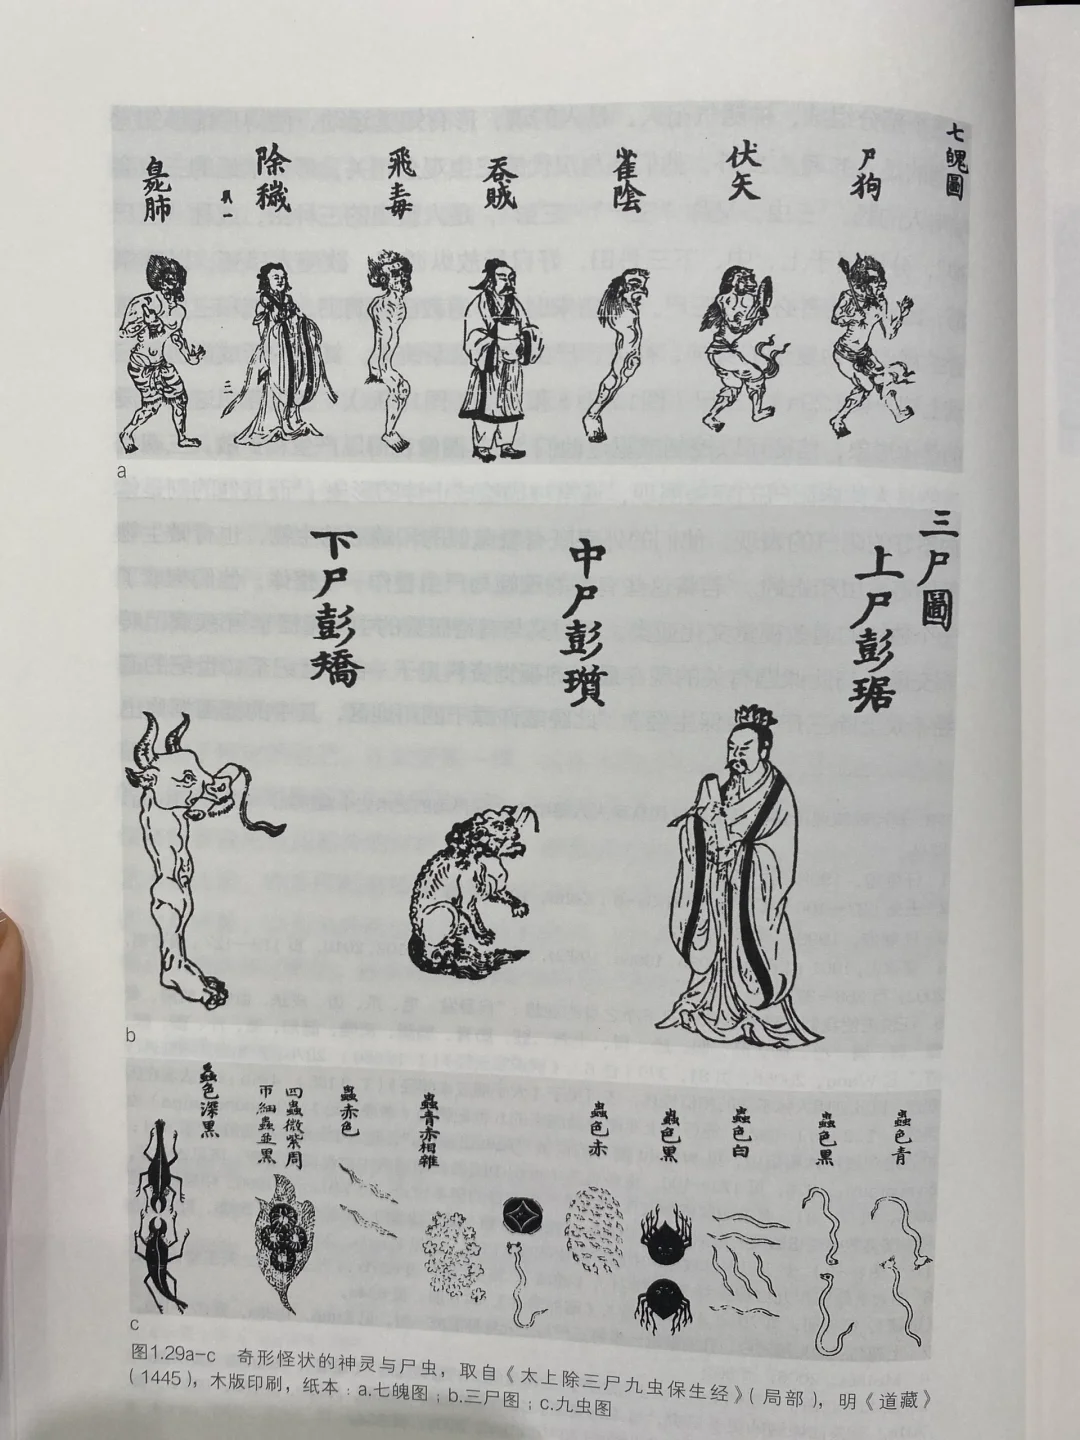 七魄圖
尸狗
伏矢
雀陰
吞賊
飛毒
除穢
臭肺
a
三尸圖
上尸彭琚
中尸彭瓆
下尸彭矯
b
蟲色青
蟲色黑
蟲色白
蟲色黑
蟲色赤
蟲青赤相雜
蟲赤色
四蟲微紫周
帀細蟲並黑
蟲色深黑
c
图1.29a-c 奇形怪状的神灵与尸虫，取自《太上除三尸九虫保生经》（局部），明《道藏》
（1445），木版印刷，纸本：a.七魄图；b.三尸图；c.九虫图